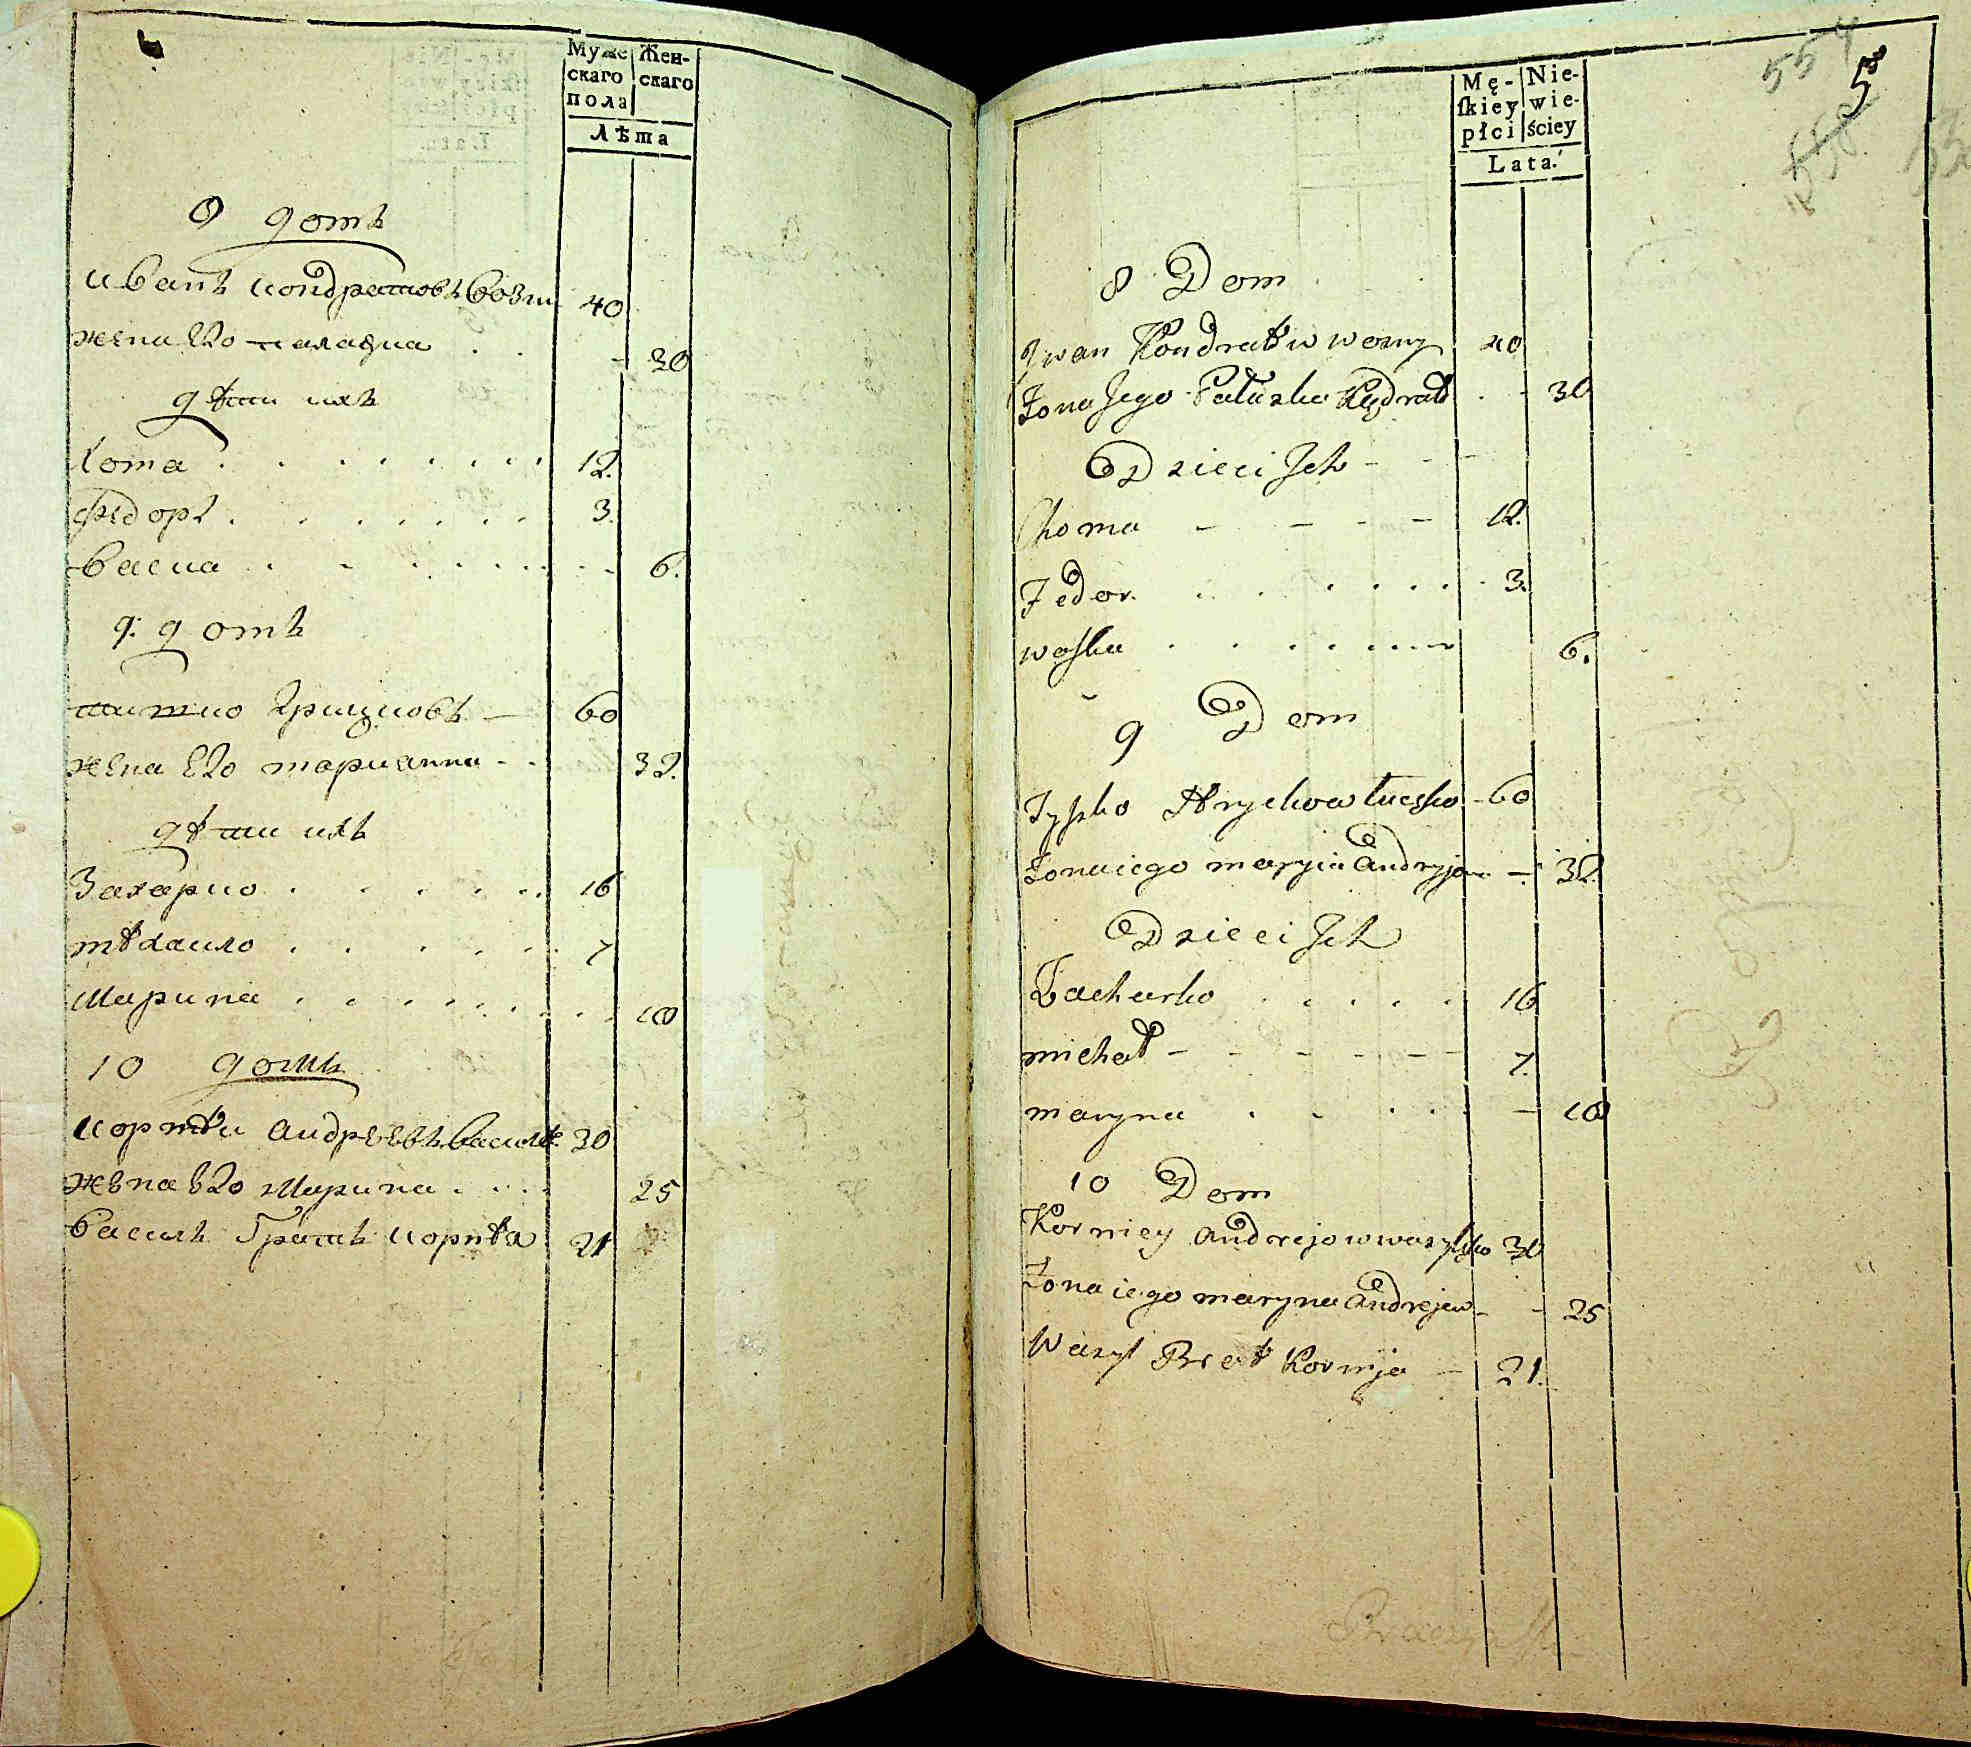 Муже Жен-
скаго скаго
пола
Лѣта
8 домъ
иванъ кондратовъ возни 40
жена его палажка 30
дѣти ихъ
хома 12.
Федоръ 3.
васка 6.
9. домъ
титко Грицковъ 60
жена его марианна 32.
дѣти ихъ
Захарко 16
мѣхаило 7
Марина 18
10 домъ
корнѣи андреевъ василв. 30
жена его Марина 25
василь братъ корнѣя 21
554
5
558
Mę- Nie-
ſkiey wie-
płci ściey
Lata.
8 Dom
Jwan Kondratow wozny 40
Zona Jego Pałuzka Kądrat 30
Dzieci Jch
Choma 12.
Fedor. 3.
waſka 6.
9 Dom
Tyſzko Hryckow 60
Zona iego maryia andryjow 32.
Dzieci Jch
Zacharko 16
michał 7.
maryna 18
10 Dom
Korniey andrejow wasylko 30
Zona iego maryna andrejew 25
Wasyl Brat Kornija 21.